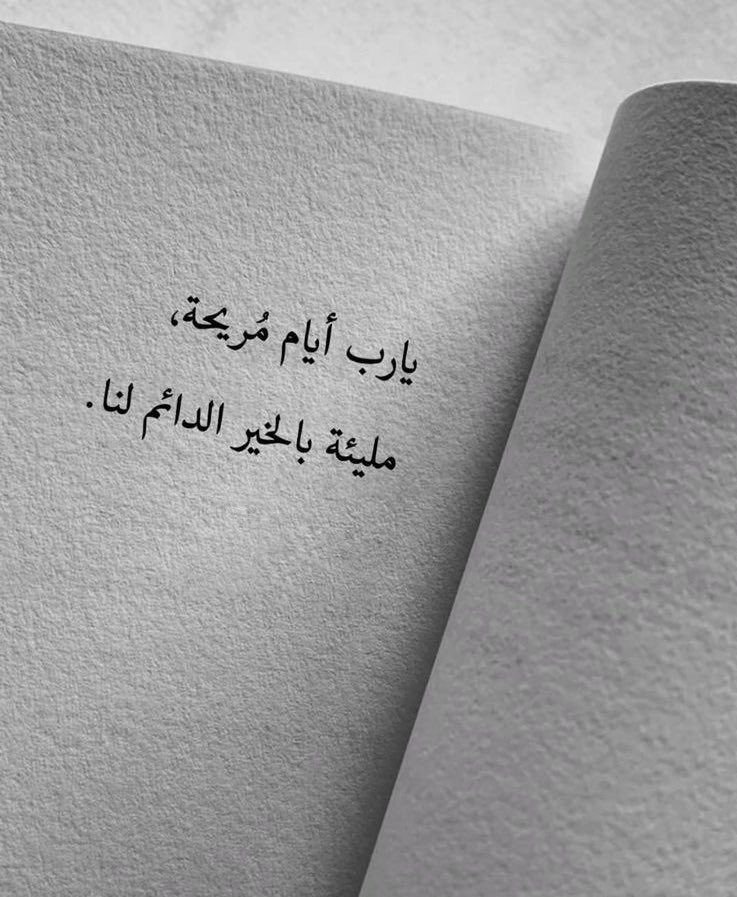 يارب أيام مُريحة،
مليئة بالخير الدائم لنا.